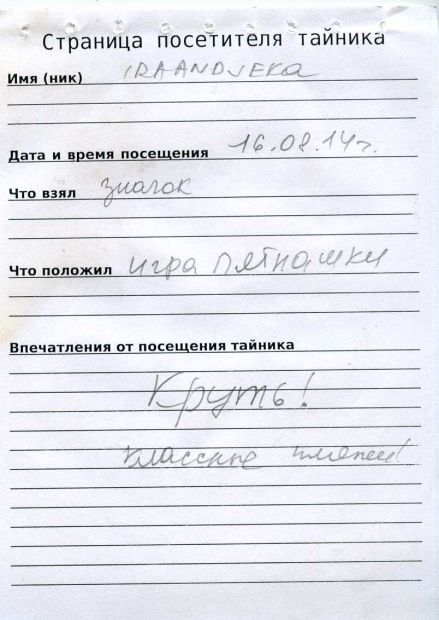 Страница посетителя тайника
Имя (ник) IRAANDJEKA
Дата и время посещения 16.08.14г.
Что взял значок
Что положил игра пятнашки
Впечатления от посещения тайника
Круть!
классные